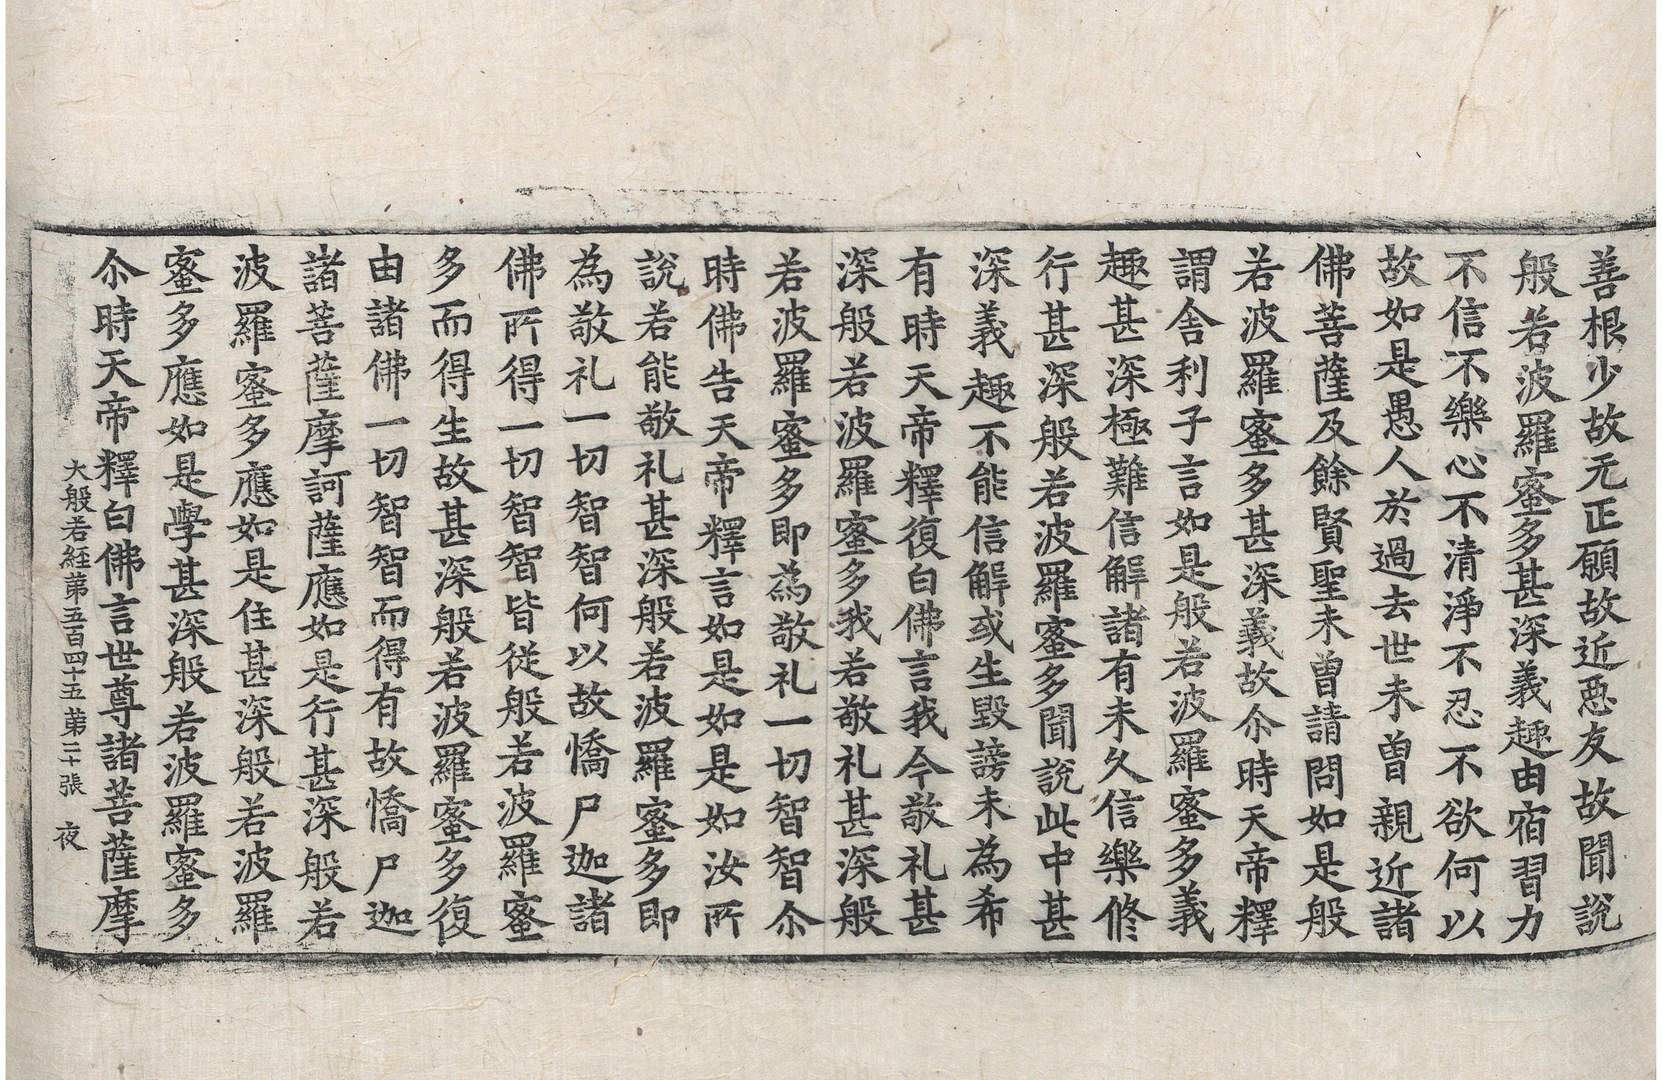 善根少故无正願故近惡友故聞說
般若波羅蜜多甚深義趣由宿習力
不信不樂心不清淨不忍不欲何以
故如是愚人於過去世未曾親近諸
佛菩薩及餘賢聖未曾請問如是般
若波羅蜜多甚深義故尒時天帝釋
謂舍利子言如是般若波羅蜜多義
趣甚深極難信解諸有未久信樂修
行甚深般若波羅蜜多聞說此中甚
深義趣不能信解或生毀謗未為希
有時天帝釋復白佛言我今敬礼甚
深般若波羅蜜多我若敬礼甚深般
若波羅蜜多即為敬礼一切智智尒
時佛告天帝釋言如是如是如汝所
說若能敬礼甚深般若波羅蜜多即
為敬礼一切智智何以故憍尸迦諸
佛所得一切智智皆從般若波羅蜜
多而得生故甚深般若波羅蜜多復
由諸佛一切智智而得有故憍尸迦
諸菩薩摩訶薩應如是行甚深般若
波羅蜜多應如是住甚深般若波羅
蜜多應如是學甚深般若波羅蜜多
尒時天帝釋白佛言世尊諸菩薩摩
大般若経苐五百四十五 苐二十張 夜